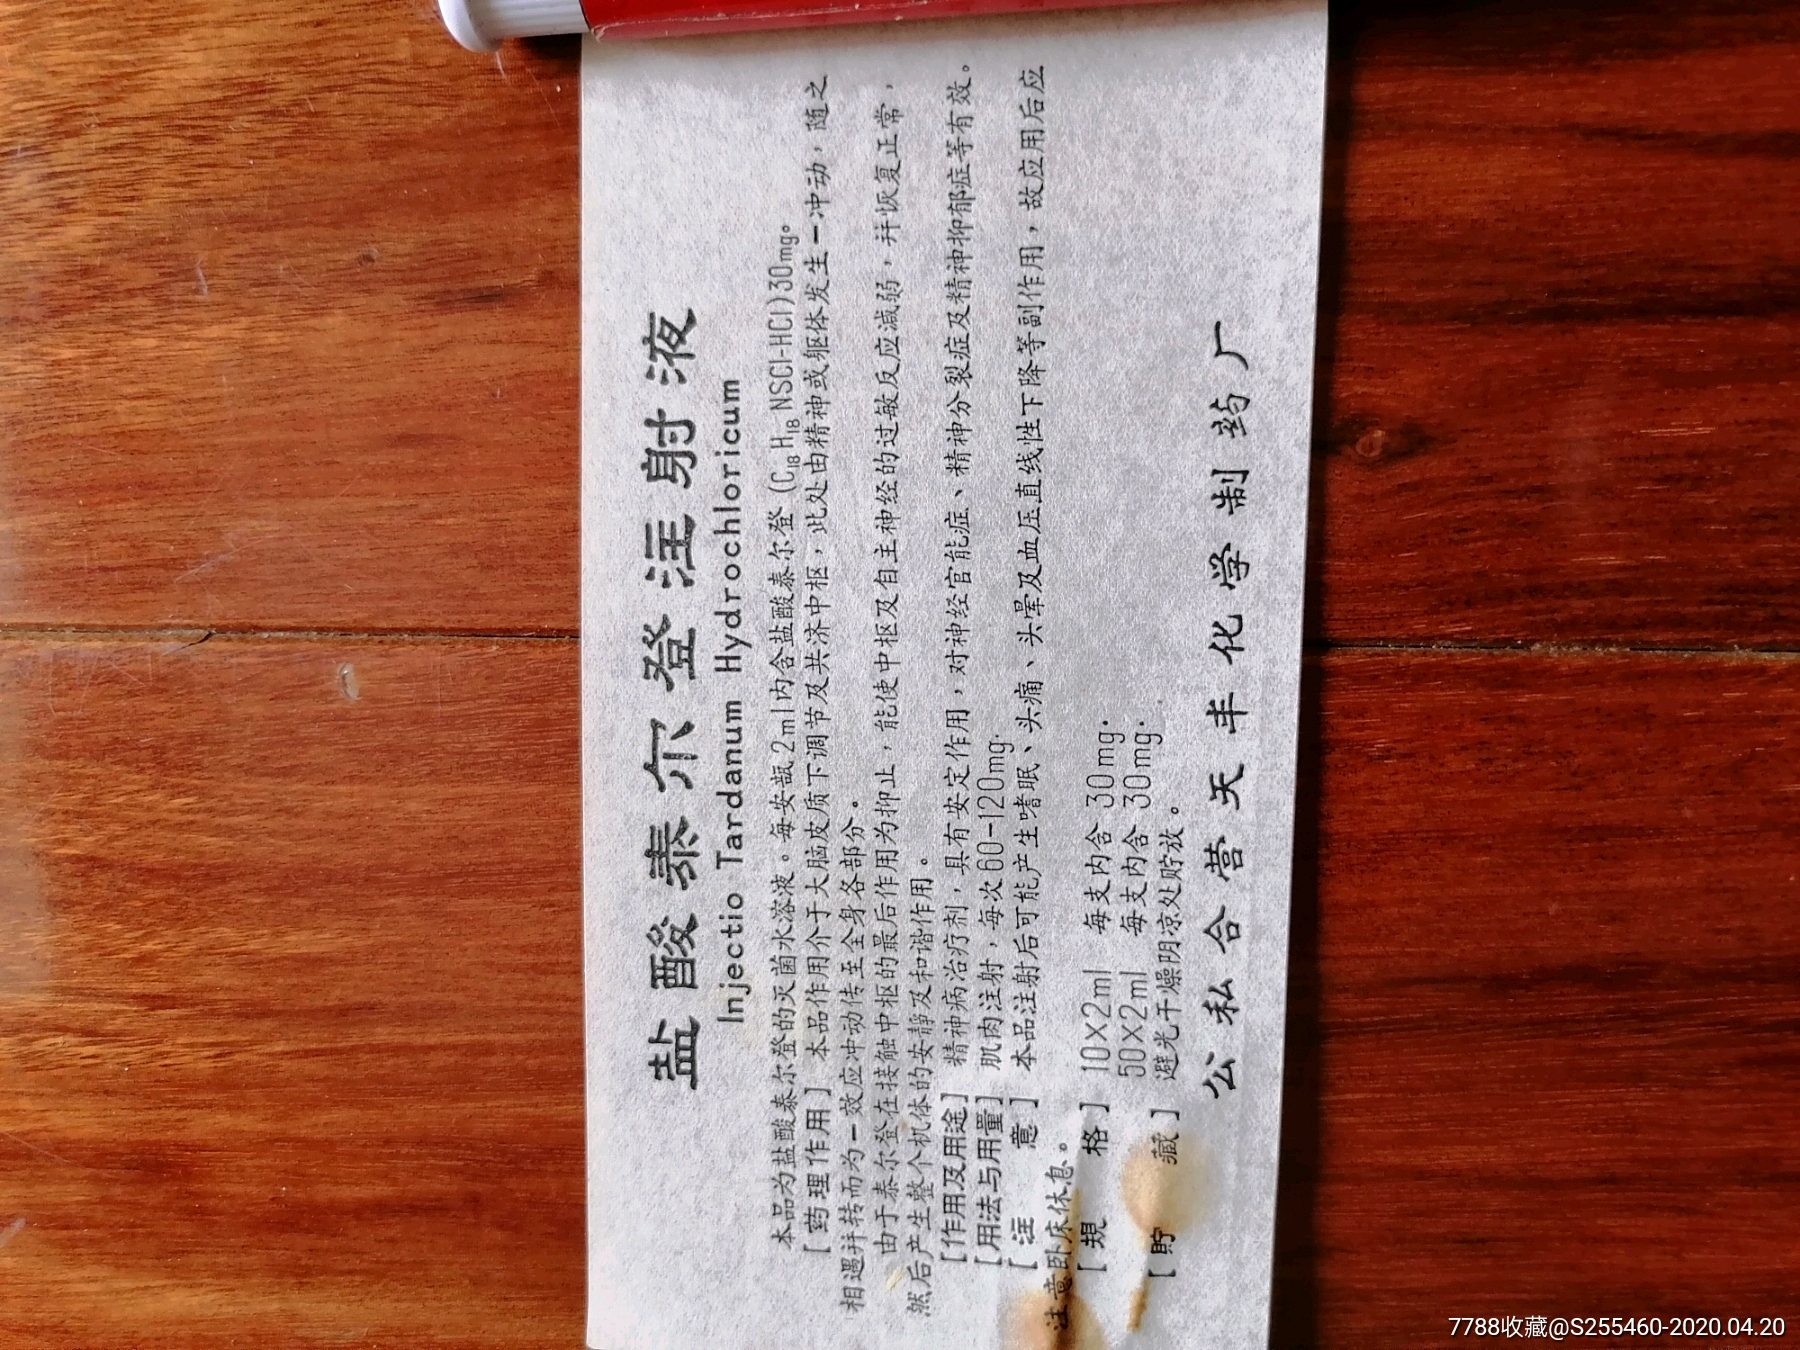 盐酸泰尔登注射液
Injectio Tardanum Hydrochloricum
本品为盐酸泰尔登的灭菌水溶液。每安瓿2ml内含盐酸泰尔登(C18H18NSCl-HCl)30mg。
[药理作用] 本品作用介于大脑皮质下调节及共济中枢，此处由精神或躯体发生一冲动，随之
相遇并转而为一效应冲动传至全身各部分。
由于泰尔登在接触中枢的最后作用为抑止，能使中枢及自主神经的过敏反应减弱，并恢复正常，
然后产生整个机体的安静及和谐作用。
[作用及用途] 精神病治疗剂，具有安定作用，对神经官能症、精神分裂症及精神抑郁症等有效。
[用法与用量] 肌肉注射，每次60-120mg.
[注 意] 本品注射后可能产生嗜眠、头痛、头晕及血压直线性下降等副作用，故应用后应
注意卧床休息。
[規 格] 10×2ml 每支内含 30mg.
50×2ml 每支内含 30mg.
[貯 藏] 避光干燥阴凉处贮放。
公私合营天丰化学制药厂
7788收藏@S255460-2020.04.20